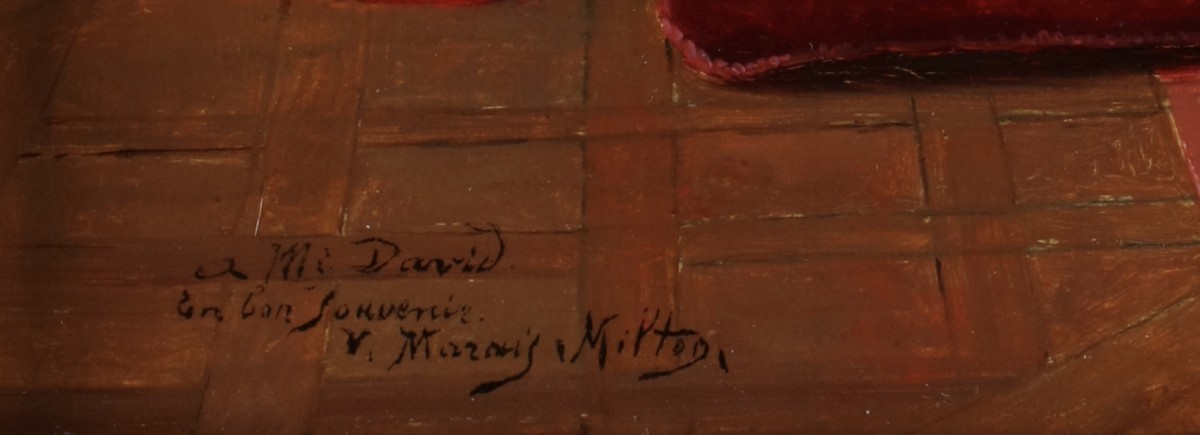 a Mr David.
En bon Souvenir.
V. Marais, Milton,